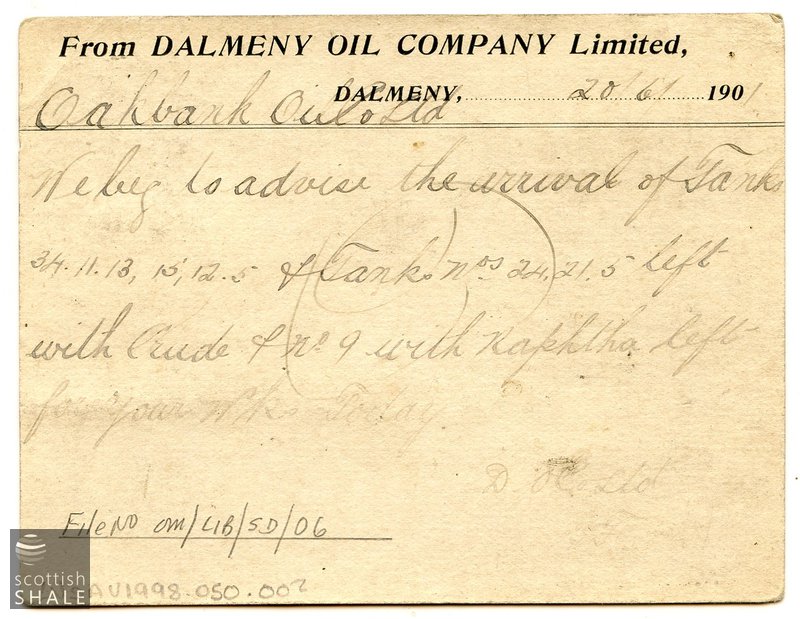 From DALMENY OIL COMPANY Limited,
DALMENY, 20/6/1901
Oakbank Oil Co Ltd
We beg to advise the arrival of Tanks
34.11.13, 15, 12.5 & Tanks nos 24.21.5 left
with Crude & no 9 with Naphtha left
for your Wks Today
D O Co Ltd
File No OM/LIB/SD/06
scottish
SHALE
AV1998.050.002